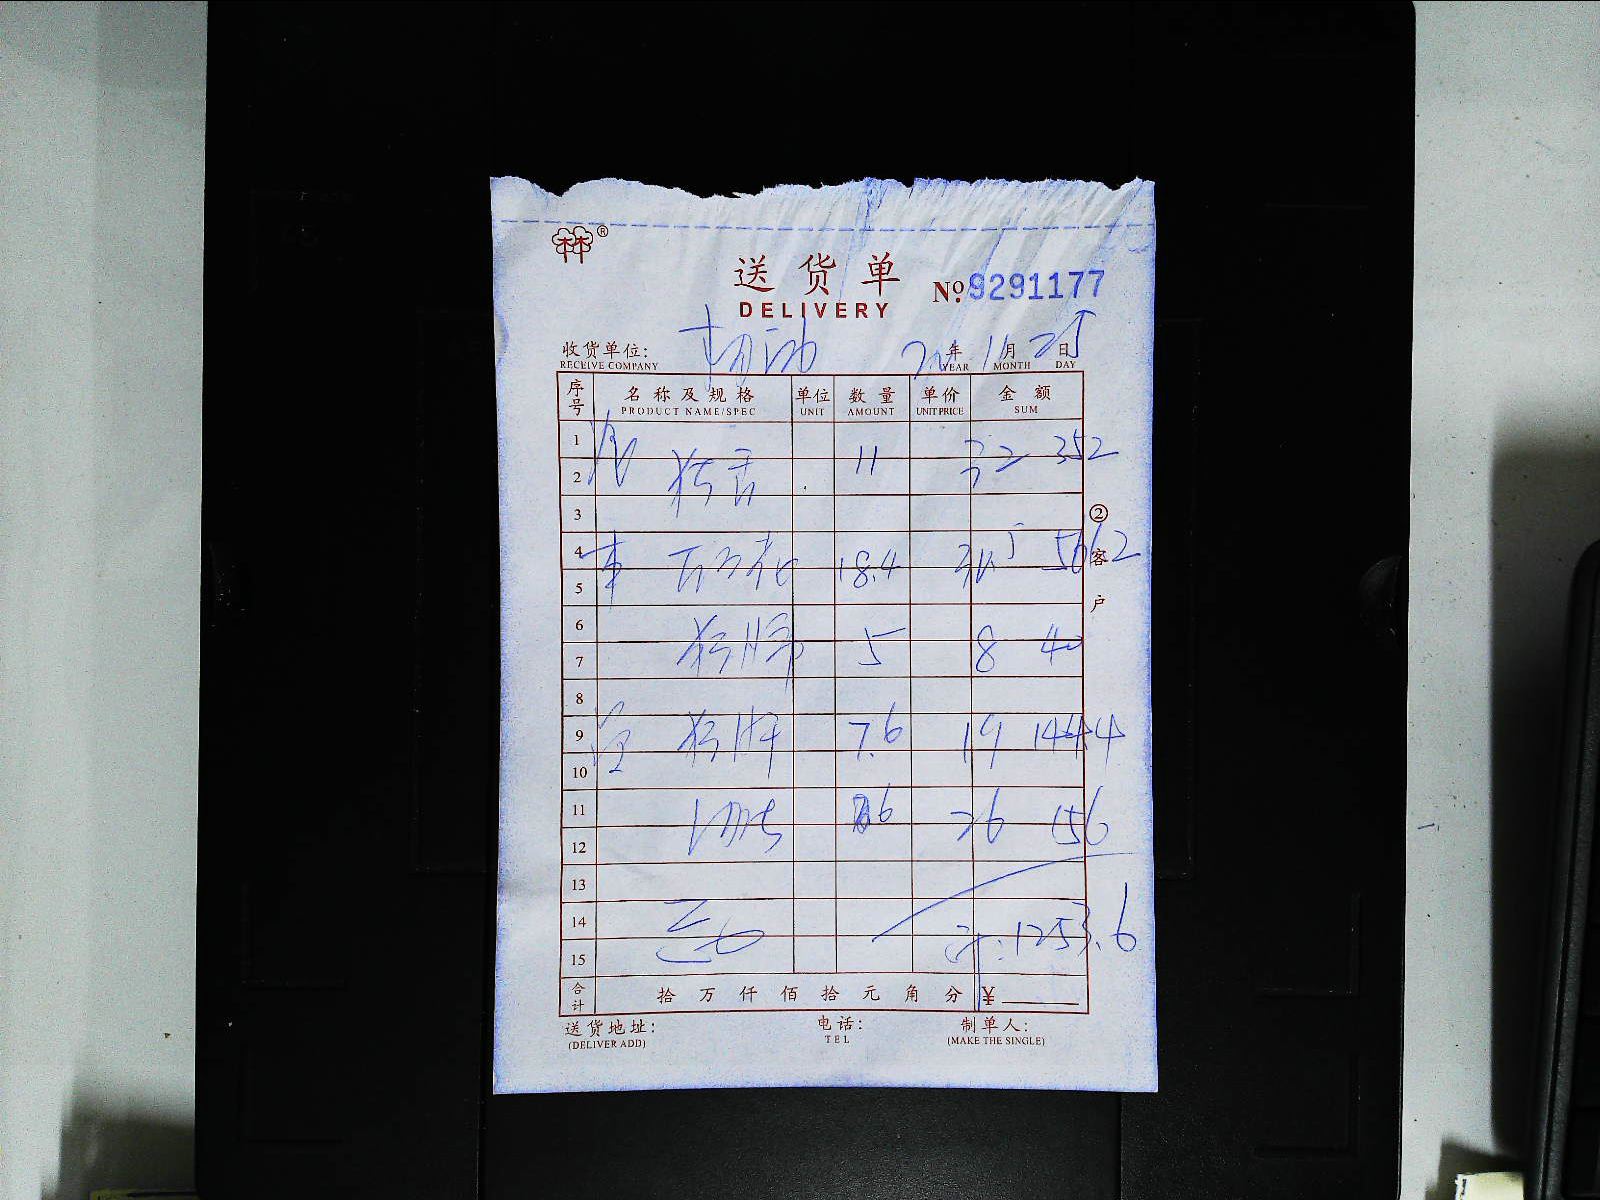 林®
送货单
DELIVERY
No.9291177
收货单位:
RECEIVE COMPANY
年 11月 25日
YEAR MONTH DAY
序号 名称及规格 单位 数量 单价 金额
PRODUCT NAME/SPEC UNIT AMOUNT UNIT PRICE SUM
1
2 猪舌 11 32 352
3
4
5 18.4 566.2
6
7 5 8 40
8
9 猪肝 7.6 19 144.4
10
11 6 26 156
12
13
14
15 计:1253.6
合计 拾 万 仟 佰 拾 元 角 分 ¥
送货地址: 电话: 制单人:
(DELIVER ADD) TEL (MAKE THE SINGLE)
②客户